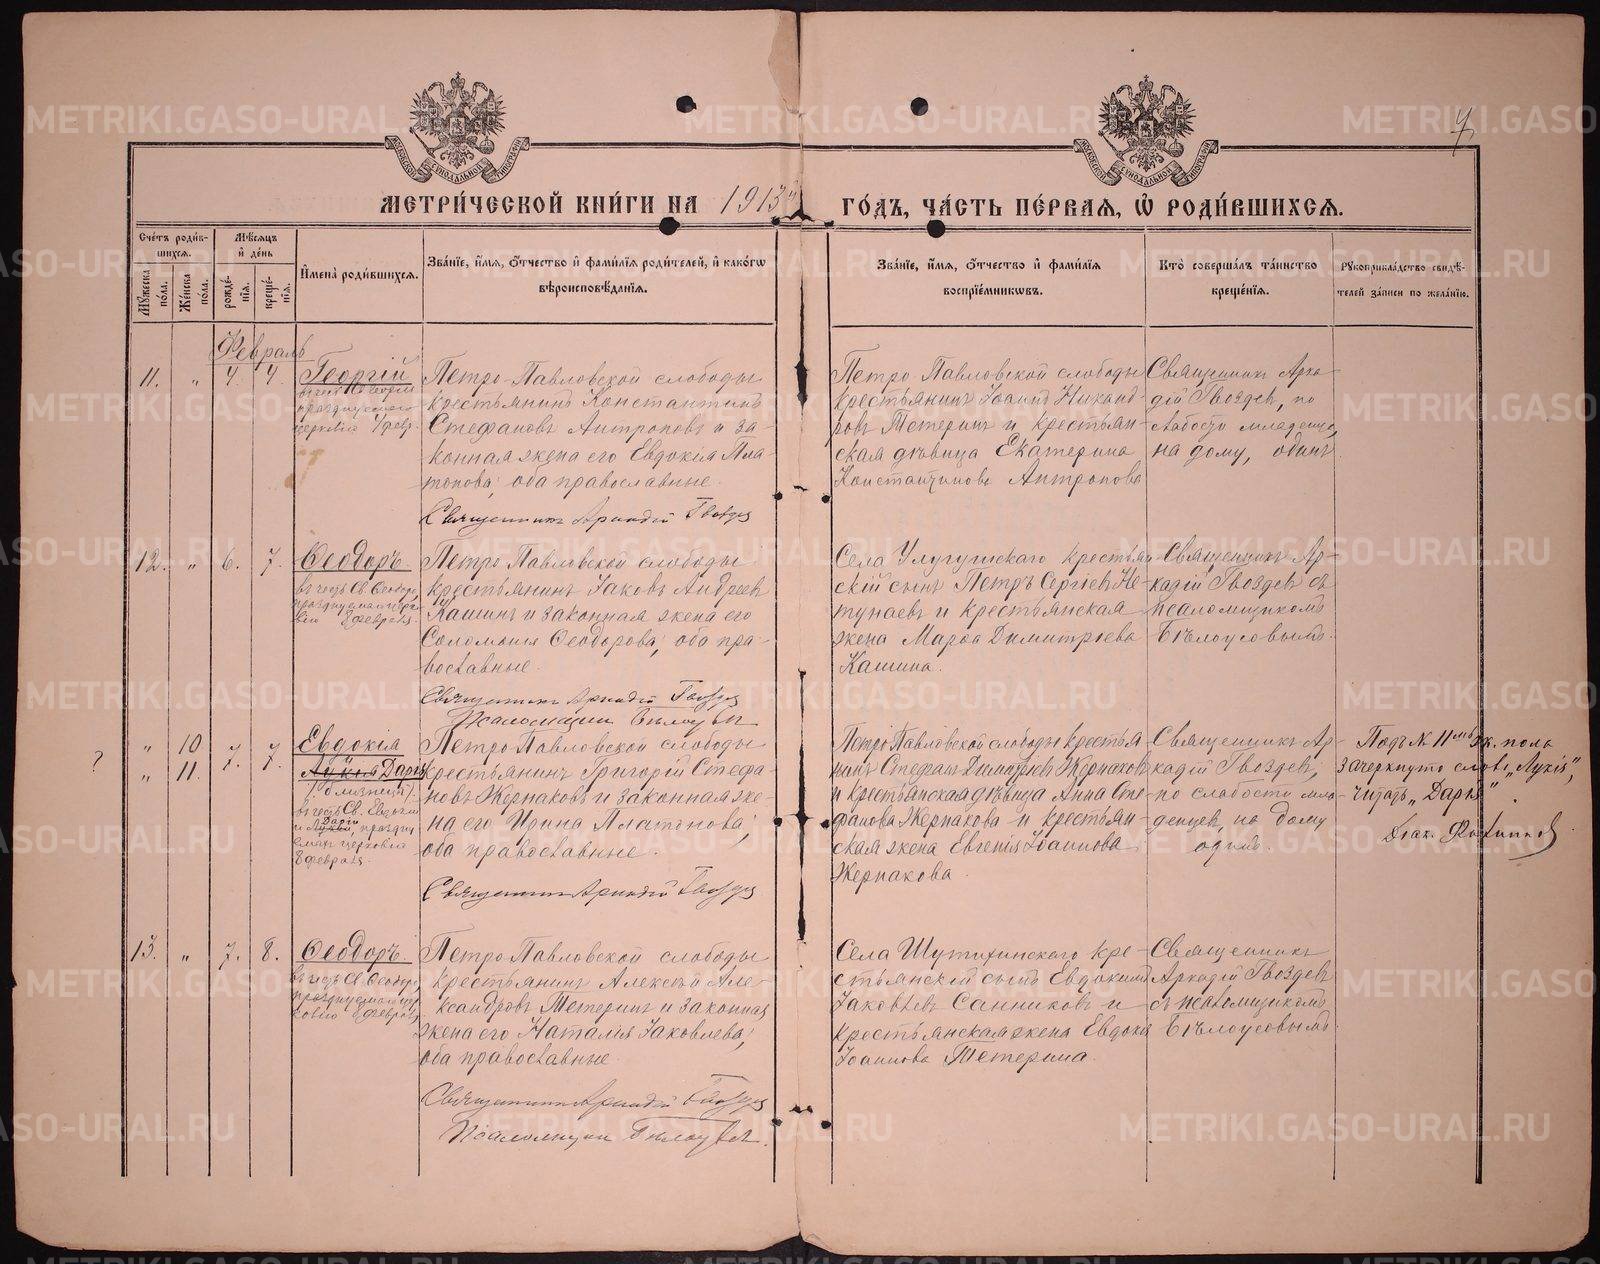 7
МЕТРИ́ЧЕСКОЙ КНИ́ГИ НА 1913й ГО́ДЪ, ЧА́СТЬ ПЕ́РВАѦ, Ѽ РОДИ́ВШИХСѦ.
Сче́тъ роди́в-
шихсѧ.
Му́жеска по́ла.
Же́нска по́ла.
Мѣ́сѧцъ
и҆ де́нь
рожде́-
нїѧ.
креще́-
нїѧ.
И҆мена̀ роди́вшихсѧ.
Зва́нїе, и҆́мѧ, о҆́тчество и҆ фами́лїѧ роди́телей, и҆ како́гѡ
вѣроисповѣ́данїѧ.
Зва́нїе, и҆́мѧ, о҆́тчество и҆ фами́лїѧ
воспрїе́мникѡвъ.
Кто̀ соверша́лъ та́инство
креще́нїѧ.
Рꙋкоприкла́дство свидѣ́-
телей за́писи по жела́нїю.
Февраль
11. „ 4. 4.
Георгій
празднуемаго
церковію 4 февр.
Петро-Павловской слободы
крестьянинъ Константинъ
Стефановъ Антроповъ и за-
конная жена его Евдокія Пла-
тонова; оба православные.
Священникъ Аркадій Гвоздев
Петро Павловской слободы
крестьянинъ Іоаннъ Никанд-
ровъ Тетеринъ и крестьян-
ская дѣвица Екатерина
Константинова Антропова
Священникъ Арка-
дій Гвоздев, по
слабости младенца,
на дому, одинъ
12. „ 6. 7.
Ѳеодоръ
въ честь Св. Ѳеодора,
празднуемаго цер-
вію 8 февраля.
Петро Павловской слободы
крестьянинъ Іаковъ Андреев
Кашинъ и законная жена его
Соломонія Ѳеодорова; оба пра-
вославные.
Священникъ Аркадій Гвоздев
Псаломщикъ Бѣлоусовъ
крестьян-
скій сынъ Петръ Сергіев Не-
тунаевъ и крестьянская
жена Марѳа Димитріева
Кашина.
Священникъ Ар-
кадій Гвоздев съ
псаломщикомъ
Бѣлоусовымъ.
?
„ 10 7. 7.
„ 11.
Евдокія
Лукія Дарія
/близнецы/.
въ честь Св. Евдокіи
и Лукіи, Даріи праздну-
емых церковію
8 февраля
Петро Павловской слободы
крестьянинъ Григорій Стефа-
новъ Жернаковъ и законная же-
на его Ирина Платонова;
оба православные.
Священникъ Аркадій Гвоздев
Петро Павловской слободы крестья-
нинъ Стефанъ Димитріев Жернаков
и крестьянская дѣвица Анна Сте-
фанова Жернакова и крестьян-
ская жена Евгенія Іоаннова
Жернакова.
Священникъ Ар-
кадій Гвоздев,
по слабости мла-
денцев, на дому
одинъ.
Подъ № 11 ж. пола
зачеркнуто слово „Лукія",
читать „Дарія".
13. „ 7. 8.
Ѳеодоръ
въ честь Св. Ѳеодора,
празднуемаго цер-
ковію 8 февраля
Петро Павловской слободы
крестьянинъ Алексѣй Але-
ксандровъ Тетеринъ и законная
жена его Наталія Іаковлева;
оба православные.
Священникъ Аркадій Гвоздев
Псаломщикъ Бѣлоусовъ
Села Шутихинскаго кре-
стьянскій сынъ Евдокимъ
Іаковлев Санниковъ и
крестьянская жена Евдокія
Іоаннова Тетерина.
Священникъ
Аркадій Гвоздев
съ псаломщикомъ
Бѣлоусовымъ
METRIKI.GASO-URAL.RU